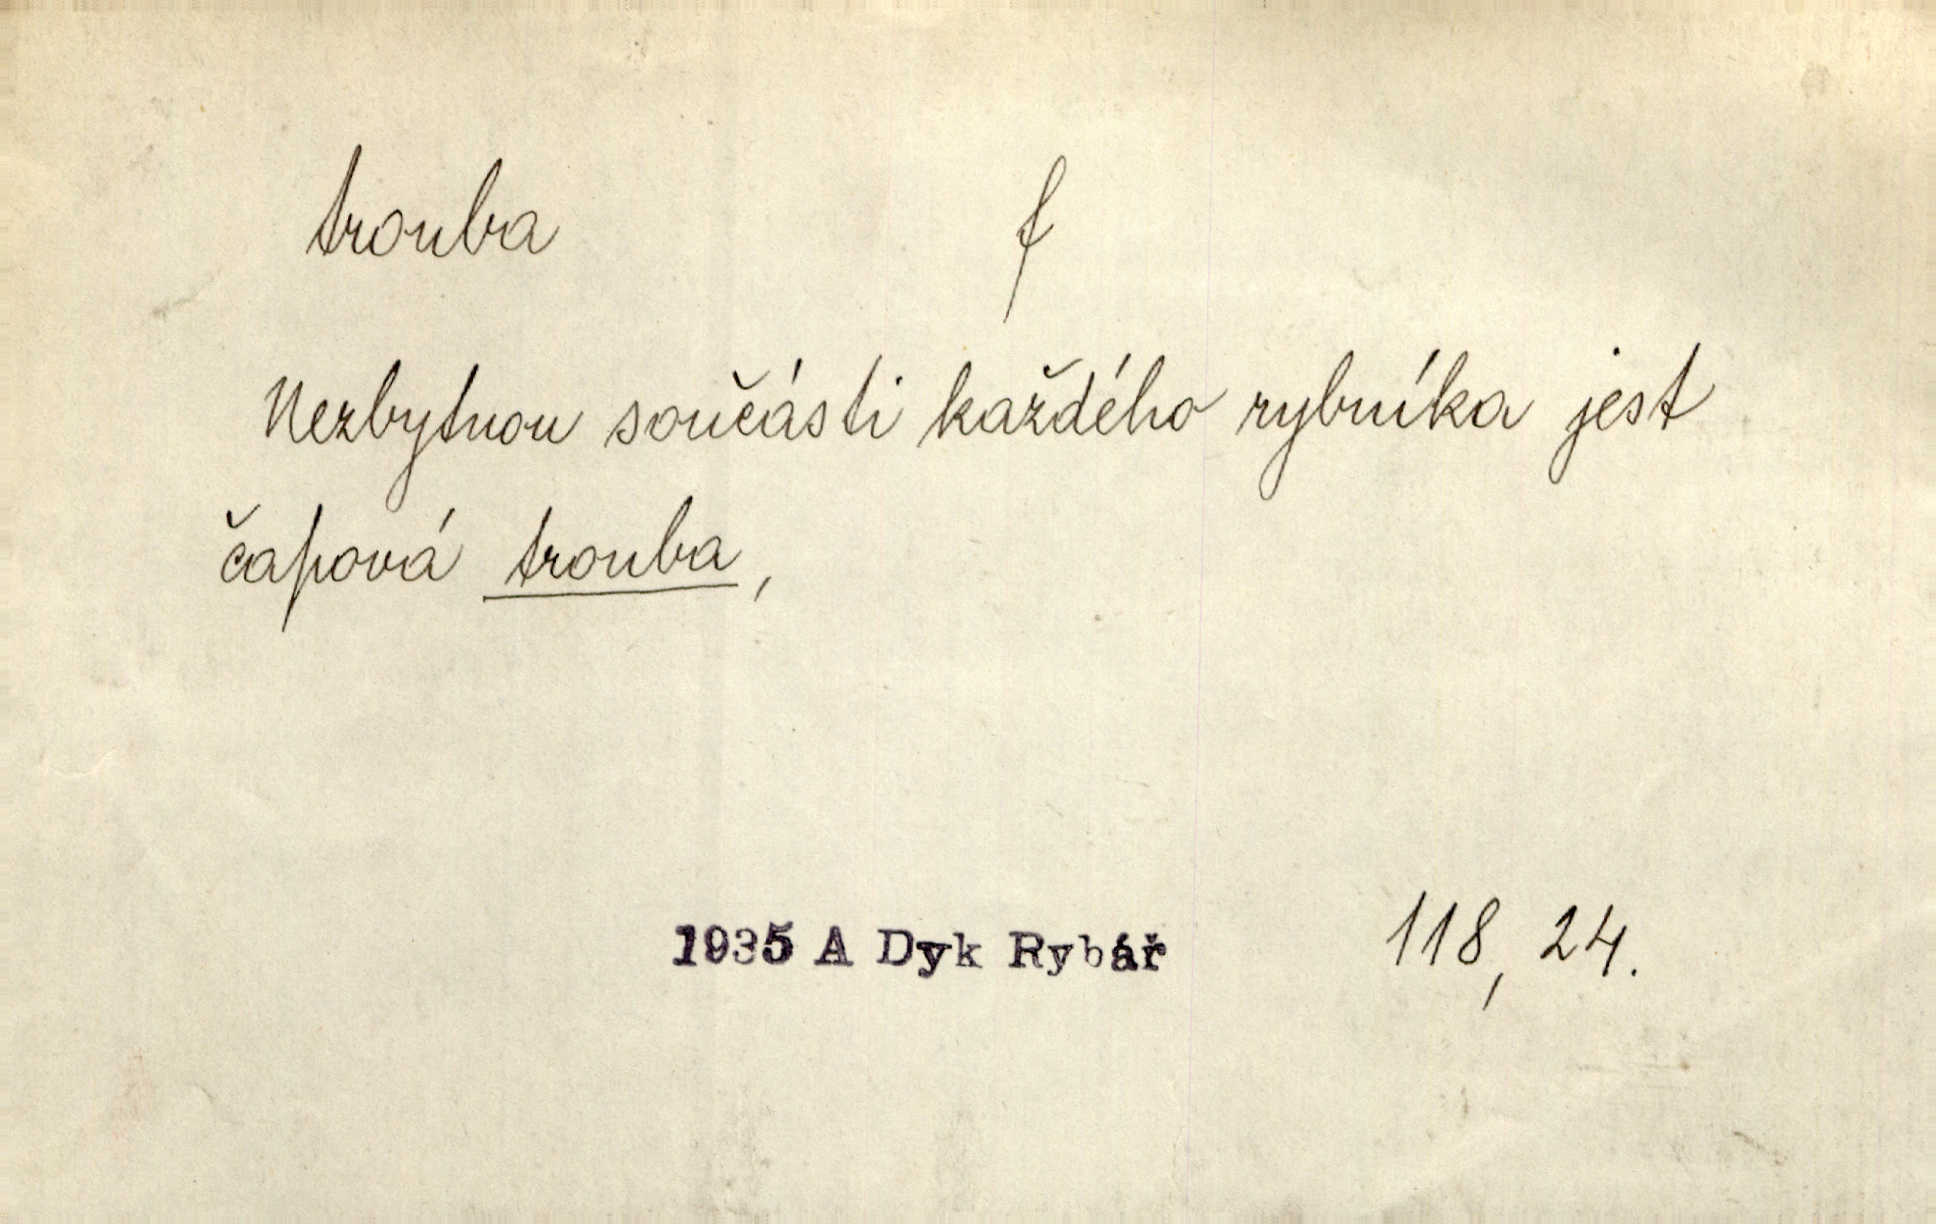 trouba f
Nezbytnou součásti každého rybníka jest
čapová trouba,
1935 A Dyk Rybář 118, 24.